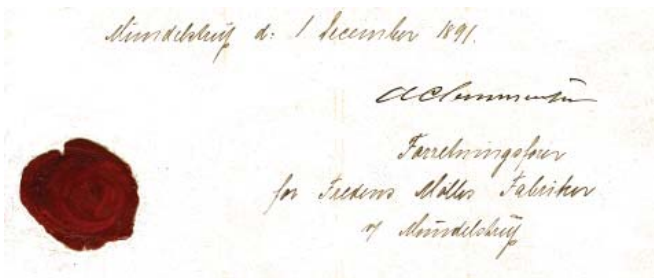 Mundelstrup d: 1 December 1891.
Forretningsfører
for Fredens Mølles Fabriker
v/ Mundelstrup